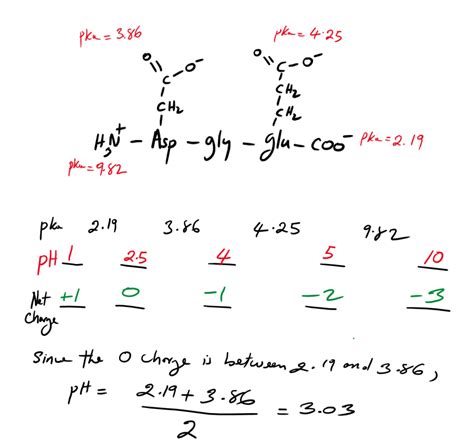 pka = 3.86 pka = 4.25
O O⁻ O O⁻
C C
CH₂ CH₂
CH₂
H₃N⁺ – Asp – gly – glu – COO⁻ pka = 2.19
pka = 9.82
pka 2.19 3.86 4.25 9.82
pH 1 2.5 4 5 10
Net +1 0 -1 -2 -3
Charge
Since the 0 charge is between 2.19 and 3.86,
pH = 2.19 + 3.86 = 3.03
2